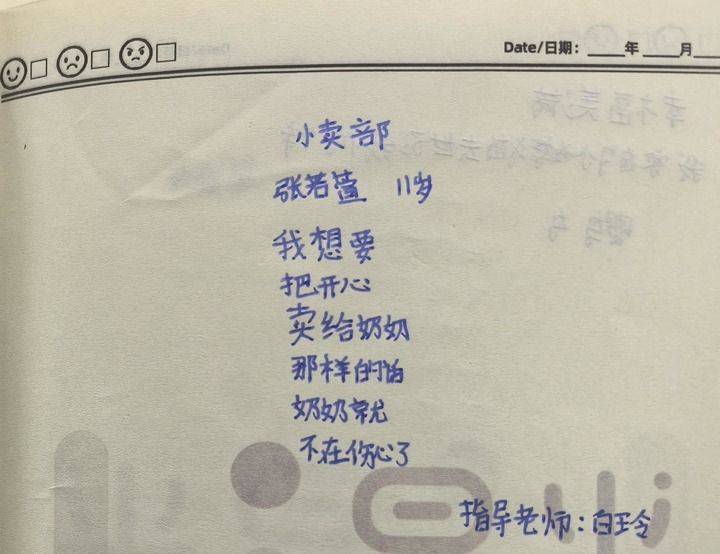 Date/日期： 年 月
小卖部
张若萱 11岁
我想要
把开心
卖给奶奶
那样的话
奶奶就
不在伤心了
指导老师：白玲